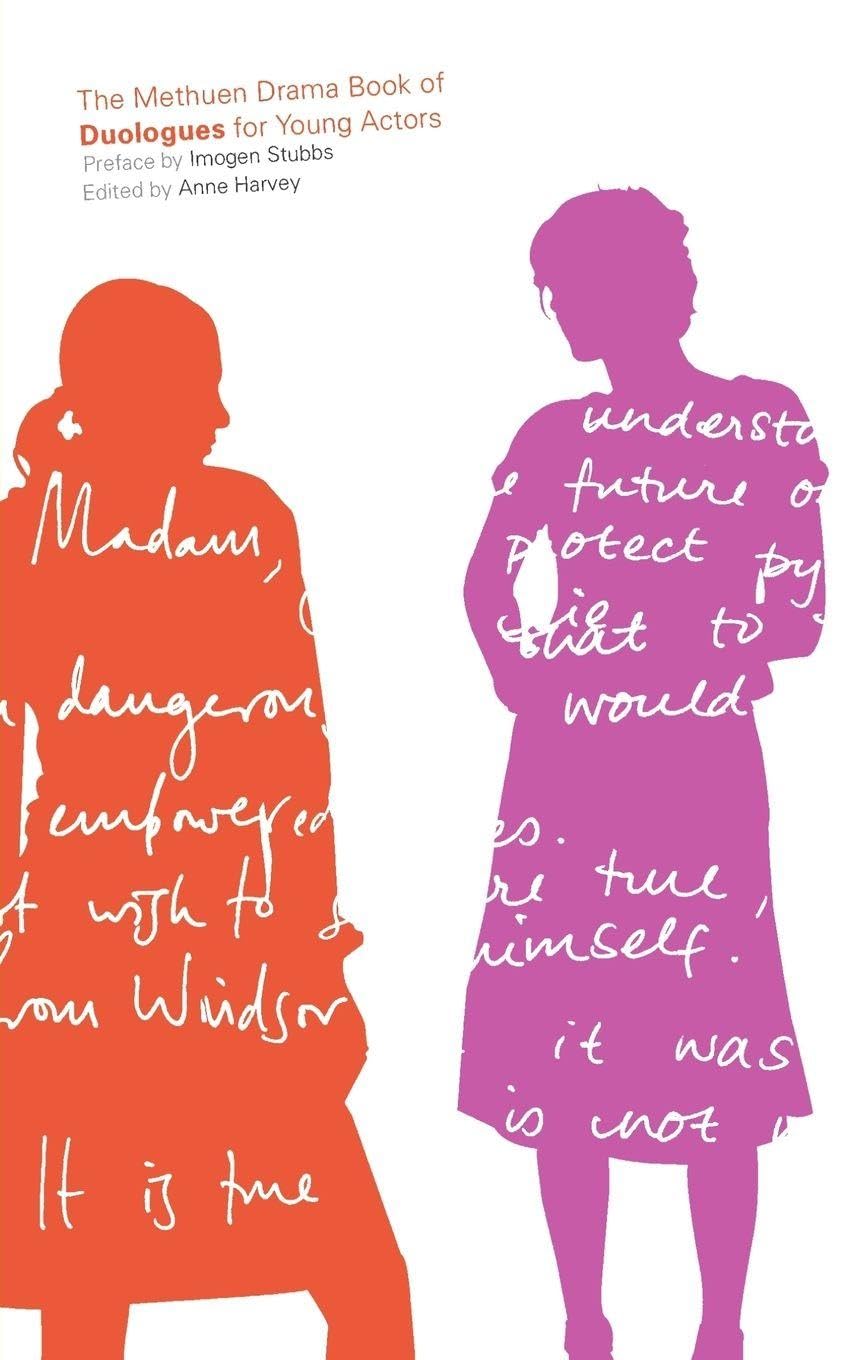 The Methuen Drama Book of
Duologues for Young Actors
Preface by Imogen Stubbs
Edited by Anne Harvey
Madam,
dangerou
empowered
wish to
Windsor
It is true
understa
future
protect
that to
would
es.
re true,
himself.
it was
is not